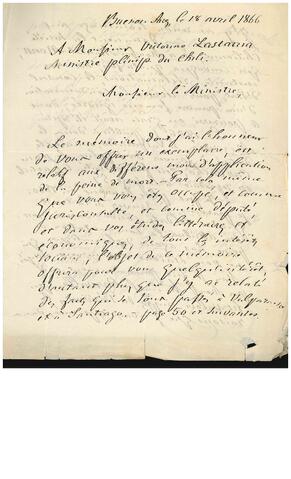 Buenos Ayres le 18 avril 1866
A Monsieur Victorino Lastarria
Ministre plénip du Chili.
Monsieur le Ministre,
Le mémoire dont j'ai l'honneur
de vous offrir un exemplaire, est
relatif aux différens modes d'application
de la peine de mort. Par cela même
que vous vous êtes occupé, et comme
Jurisconsulte, et comme député
et dans vos études littéraires et
économiques, de tous les intérêts
sociaux, l'objet de ce mémoire
offrira pour vous quelque intérêt,
d'autant plus que j'y ai relaté
des faits qui se sont passés à Valparaiso
et à Santiago - page 50 et suivantes.